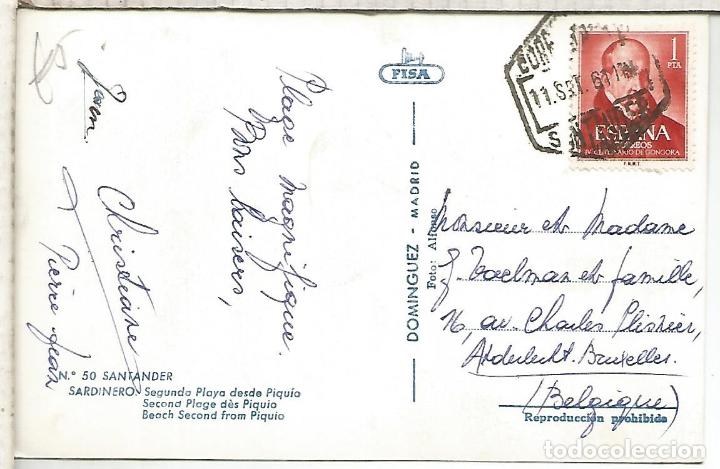 Plage magnifique.
Bons baisers,
Christiane
Pierre Jean
FISA
DOMINGUEZ - MADRID
Foto: Alfonso
1
PTA
ESPAÑA
CORREOS
IV CENTENARIO DE GONGORA
F.N.M.T.
11.SET.61
Monsieur et Madame
et famille,
16, av. Charles Plisnier,
Anderlecht. Bruxelles.
(Belgique)
N.º 50 SANTANDER
SARDINERO. Segunda Playa desde Piquío
Second Plage dès Piquio
Beach Second from Piquio
Reproducción prohibida
todocoleccion